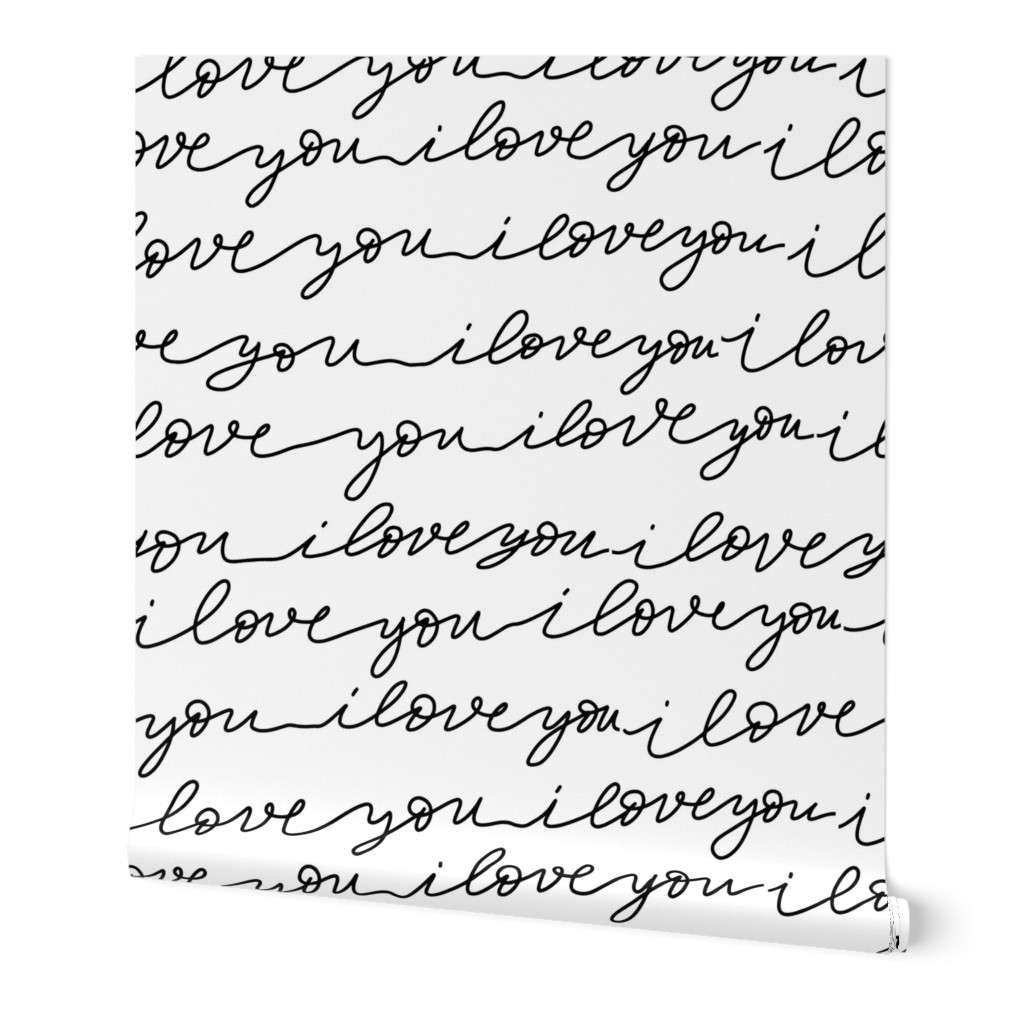 love you i love you i
ove you i love you i lo
love you i love you i l
ve you i love you i lov
love you i love you i l
you i love you i love y
i love you i love you
you i love you i love
love you i love you i
ove you i love you i lo